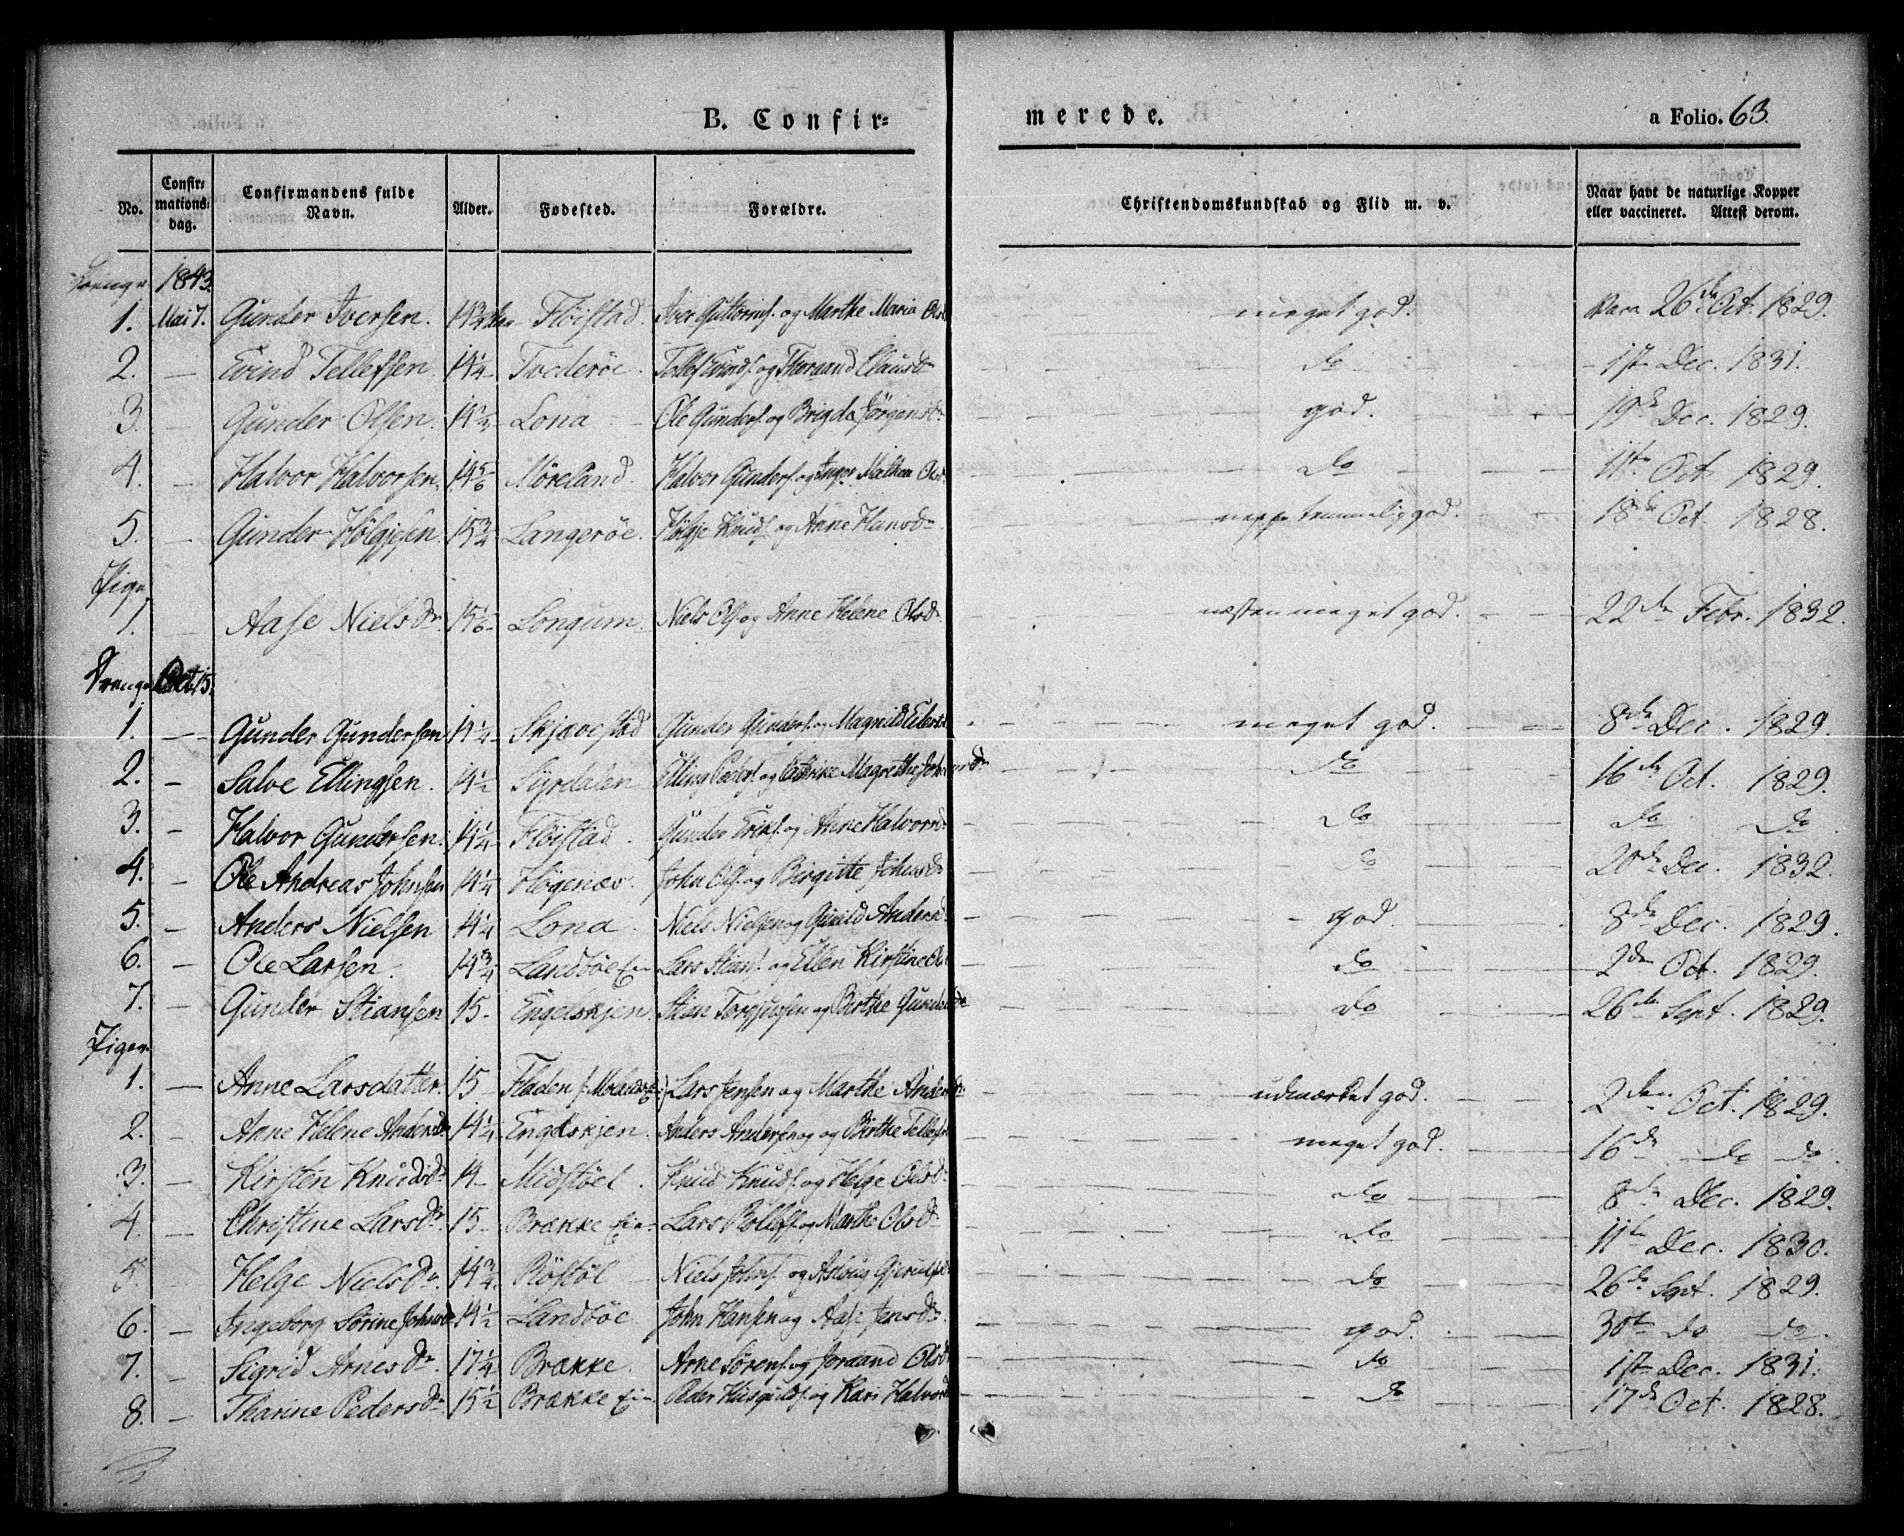 B. Confir- merede. a Folio. 63.
No. Confir- mations- dag. Confirmandens fulde Navn. Alder. Fødested. Forældre. Christendomskundskab og Flid m. v. Naar havt de naturlige Kopper eller vaccineret. Attest derom.
Drenge 1843.
1. Mai 7. Gunder Iversen. 14 3/4 Fløistad. Iver Guttorms. og Marthe Maria Olsd meget god. Vacc. 26de Oct. 1829.
2. — Evind Tellefsen 14 1/4 Tverderøe. Tellef Evinds. og Thoraand Clausdr do 1ste Dec. 1831.
3. — Gunder Olsen. 14 1/2 Lona Ole Gunders. og Brigda Jørgensdr god. 19de Dec. 1829.
4. — Halvor Halvorsen. 14 5/6 Møreland. Halvor Gunders. og Inger Mathea Olsd. do 11te Oct. 1829.
5. — Gunder Hølgjesen. 15 3/4 Langerøe. Hølgje Knuds. og Anne Hansdr neppe temmelig god. 18de Oct. 1828.
Piger
1. Aase Nielsdr 15 1/6 Longum. Niels Ols. og Anne Helene Olsd næsten meget god. 22de Febr. 1832.
Drenge Oct. 15.
1. — Gunder Gundersen 14 1/4 Skjævestad Gunder Gunders. og Magnild meget god. 8de Dec. 1829.
2. — Salve Ellingsen. 14 1/2 Syrdalen Elling Peders. og Magrethe do 16de Oct. 1829.
3. — Halvor Gundersen. 14 1/4 Fløistad. Gunder Eriks. og Anne Halvorsd. do do do
4. — Ole Andreas Johnsen 14 1/4 Høgenæs. John Ols. og Birgitte Johnsd do 20de Dec. 1832.
5. — Anders Nielsen 14 1/4 Lona. Niels Nielsen og Gunild Andersd god. 8de Dec. 1829.
6. — Ole Larsen. 14 3/4 Landbøe Ei— Lars Stians. og Ellen Kirstine Ols do 2den Oct. 1829.
7. — Gunder Stiansen 15. Engelskjen. Stian Torgjusen og Birthe Gundersd do 26de Sept. 1829.
Piger.
1. — Anne Larsdatter. 15. Fladen Lars Jensen og Marthe Andersd. udmærket god. 2den Oct. 1829.
2. — Anne Helene Andersdr 14 1/4 Engelskjen. Anders Andersen og Birthe Tellefsd meget god. 16de do do
3. — Kirsten Knudsdr 14 Midstøel. Knud Knuds. og Helge Olsdr do 8de Dec. 1829.
4. — Christine Larsdr 15 Brække Ei— Lars Rollefs. og Marthe Olsdr do 11te Dec. 1830.
5 — Helge Nielsdr. 14 3/4 Røstøl Niels Johns. og Aslaug Gjeruldsd do 26de Sept. 1829.
6. — Ingeborg Sørine Johnsd 14 1/2 Landbøe John Hansen og Aase Jensdr. god. 30te do do
7. — Sigrid Arnesdr 17 1/4 Brække. Arne Sørens. og Joraand Olsd do 1ste Dec. 1831.
8. — Tharine Pedersdr 15 1/2 Brække Ei— Peder og Kari Halvorsd do 17de Oct. 1828.